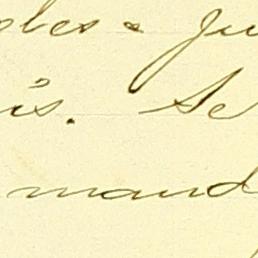 ples & Ju
is. Se
mand